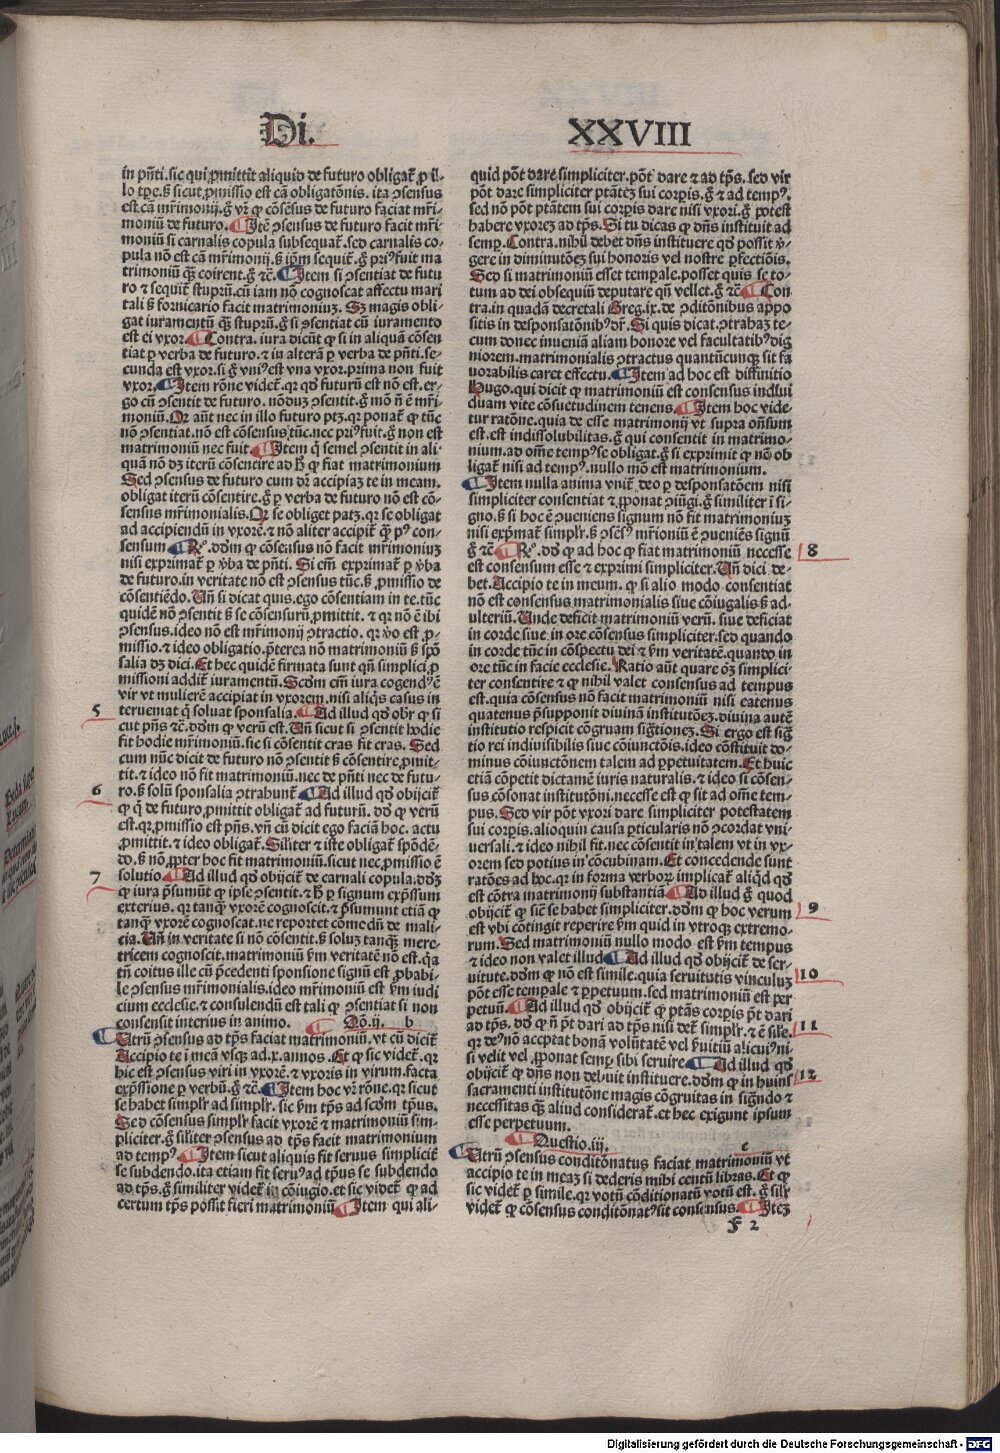 Di.
XXVIII
in pñti. sic qui ꝓmittit aliquid de futuro obligat̃ ꝓ il/
lo tꝑe. ß sicut ꝓmissio est cã obligatõnis. ita ↄsensus
est cã mr̃imonij. g̃ vr̃ ꝙ cõsẽsus de futuro faciat mr̃i/
moniũ de futuro. Itẽ ↄsensus de futuro facit mr̃i/
moniũ si carnalis copula subsequat̃. sed carnalis co/
pula nõ est cã mr̃imonij. ß ip̃m sequit̃. g̃ priꝰ fuit ma
trimoniũ qᷓ coirent. g̃ ⁊c̃. Item si ↄsentiat de futu
ro ⁊ sequit̃ stuprũ. cũ iam nõ cognoscat affectu mari
tali ß fornicario facit matrimoniuꝫ. Sꝫ magis obli/
gat iuramentũ qᷓ stuprũ. g̃ si ↄsentiat cũ iuramento
est ei vxor. Contra. iura dicũt ꝙ si in aliquã cõsen
tiat ꝑ verba de futuro. ⁊ in alterã ꝑ verba de pñti. se/
cunda est vxor. si g̃ vniꝰ est vna vxor. prima non fuit
vxor. Item rõne videt̃. qꝛ qđ futurũ est nõ est. er/
go cũ ↄsentit de futuro. nõduꝫ ↄsentit. g̃ mõ ñ ẽ mr̃i/
moniũ. Qꝛ aũt nec in illo futuro ptꝫ. qꝛ ponat̃ ꝙ tũc
nõ ↄsentiat. nõ est cõsensus tũc. nec priꝰ fuit. g̃ non est
matrimoniũ nec fuit. Item q̃ semel ↄsentit in ali/
quã nõ dꝫ iterũ cõsentire ad ꝙ fiat matrimonium
Sed ↄsensus de futuro cum dr̃ accipiaꝫ te in meam.
obligat iterũ cõsentire. g̃ ꝑ verba de futuro nõ est cõ/
sensus mr̃imonialis. Qꝛ se obliget patꝫ. qꝛ se obligat
ad accipiendũ in vxorẽ. ⁊ nõ aliter accipit̃ qᷓ pꝰ con/
sensum Rº. dꝺm ꝙ cõsensus nõ facit mr̃imoniuꝫ
nisi exprimat̃ ꝑ ꝟba de pñti. Si em̃ exprimat̃ ꝑ ꝟba
de futuro. in veritate nõ est ↄsensus tũc. ß ꝓmissio de
cõsentiẽdo. Vñ si dicat quis. ego cõsentiam in te. tũc
quidẽ nõ ↄsentit ß se cõsensurũ ꝓmittit. ⁊ qꝛ nõ ẽ ibi
ↄsensus. ideo nõ est mr̃imonij ↄtractio. qꝛ ꝟo est ꝓ/
missio. ⁊ ideo obligatio. ꝓterea nõ matrimoniũ ß spõ
salia dꝫ dici. Et hec quidẽ firmata sunt qñ simplici ꝓ
missioni addit̃ iuramentũ. Scdꝫm em̃ iura cogendꝰ ẽ
vir vt mulierẽ accipiat in vxorem. nisi aliqͥs casus in
5
terueniat q̃ soluat sponsalia. Ad illud qđ obr̃ ꝙ si
cut pñs ⁊c̃. dꝺm ꝙ verũ est. Vñ sicut si ↄsentit hodie
fit hodie mr̃imoniũ. sic si cõsentit cras fit cras. Sed
cum nũc dicit de futuro nõ ↄsentit ß cõsentire ꝓmit/
tit. ⁊ ideo nõ fit matrimoniũ. nec de pñti nec de futu/
6
ro. ß solũ sponsalia ↄtrahunt̃. Ad illud qđ obijcit̃
ꝙ q̃ de futuro ꝓmittit obligat̃ ad futurũ. dꝺ ꝙ verũ
est. qꝛ ꝓmissio est pñs. vñ cũ dicit ego faciã hoc. actu
ꝓmittit. ⁊ ideo obligat̃. Silıter ⁊ iste obligat̃ spõdẽ/
do. ß nõ ꝓpter hoc fit matrimoniũ. sicut nec ꝓmissio ẽ
7
solutio. Ad illud qđ obijcit̃ de carnali copula. dꝺꝫ
ꝙ iura p̃sumũt ꝙ ipse ↄsentit. ⁊ ꝑ signum exp̃ssum
exterius. qꝛ tanqᷓ vxorẽ cognoscit. ⁊ p̃sumunt etiã ꝙ
tanqᷓ vxorẽ cognoscat. ne reportet cõmodũ de mali/
cia. Vñ in veritate si nõ cõsentit. ß soluꝫ tanqᷓ mere/
tricem cognoscit. matrimoniũ ẜm veritatẽ nõ est. q̃a
tñ coitus ille cũ p̃cedenti sponsione signũ est ꝓbabi/
le ↄsensus mr̃imonialis. ideo mr̃imoniũ est ẜm iudi
cium ecclesie. ⁊ consulendũ est tali ꝙ ↄsentiat si non
consensit interius in animo. Qõ. ij. b
Utrũ ↄsensus ad tp̃s faciat matrimoniũ. vt cũ dicit̃
Accipio te ĩ meã vsqꝫ ad. x. annos. Et ꝙ sic videt̃. qꝛ
hic est ↄsensus viri in vxorẽ. ⁊ vxoris in virum. facta
exp̃ssione ꝑ verbũ. g̃ ⁊c̃. Item hoc vr̃ rõne. qꝛ sicut
se habet simplr̃ ad simplr̃. sic ẜm tp̃s ad scdꝫm tp̃us.
Sed cõsensus simplr̃ facit vxorẽ ⁊ matrimoniũ sim/
pliciter. g̃ silıter ↄsensus ad tp̃s facit matrimonium
ad tempꝰ. Item sicut aliquis fit seruus simplicit̃
se subdendo. ita etiam fit seruꝰ ad tp̃us se subdendo
ad tp̃s. g̃ similiter videt̃ in cõiugio. et sic videt̃ ꝙ ad
certum tp̃s possit fieri matrimoniũ. Item qui ali/
quid põt dare simpliciter. põt dare ⁊ ad tp̃s. sed vir
põt dare simpliciter ptãtẽ sui corꝑis. g̃ ⁊ ad tempꝰ.
sed nõ põt ptãtem sui corꝑis dare nisi vxori. g̃ potest
habere vxoreꝫ ad tp̃s. Si tu dicas ꝙ dñs instituit ad
semꝑ. Contra. nihil debet dñs instituere qđ possit ꝟ/
gere in diminutõeꝫ sui honoris vel nostre ꝑfectiõis.
Sed si matrimoniũ esset temꝑale. posset quis se to/
tum ad dei obsequiũ deputare qñ vellet. g̃ ⁊c̃ Con
tra. in quadã decretali Greg. ix. de ↄditõnibus appo
sitis in desponsatõnibꝰ dr̃. Si quis dicat. ↄtrahaꝫ te/
cum donec inueniã aliam honore vel facultatibꝰ dig
niorem. matrimonialis ↄtractus quantũcunqꝫ sit fa
uorabilis caret effectu. Item ad hoc est diffinitio
Hugo. qui dicit ꝙ matrimoniũ est consensus indiui
duam vite cõsuetudinem tenens. Item hoc vide/
tur ratõne. quia de esse matrimonij vt supra oñsum
est. est indissolubilitas. g̃ qui consentit in matrimo/
nium. ad om̃e tempꝰ se obligat. g̃ si exprimit ꝙ nõ ob
ligat̃ nisi ad tempꝰ. nullo mõ est matrimonium.
Item nulla anima vnit̃ deo ꝑ desponsatõem nisi
simpliciter consentiat ⁊ ꝓponat ↄiũgi. g̃ similiter ĩ si/
gno. ß si hoc ẽ ↄueniens signum nõ fit matrimoniuꝫ
nisi exp̃mat̃ simplr̃. ß ↄsẽsꝰ mr̃ioniũ ẽ ↄueniẽs signũ
g̃ ⁊c̃ Rº. dꝺ ꝙ ad hoc ꝙ fiat matrimoniũ necesse
8
est consensum esse ⁊ exprimi simpliciter. Vñ dici de/
bet. Accipio te in meum. ꝙ si alio modo consentiat
nõ est consensus matrimonialis siue cõiugalis ß ad/
ulteriũ. Unde deficit matrimoniũ verũ. siue deficiat
in corde siue in ore cõsensus simpliciter. sed quando
in corde tũc in cõspectu dei ⁊ ẜm veritatẽ. quando in
ore tũc in facie ecclesie. Ratio aũt quare oꝫ simplici/
ter consentire ⁊ ꝙ nihil valet consensus ad tempus
est. quia cõsensus nõ facit matrimoniũ nisi eatenus
quatenus p̃supponit diuinã institutõeꝫ. diuina autẽ
institutio respicit cõgruam sig̃tionez. Si ergo est sig̃
tio rei indiuisibilis siue cõiunctõis. ideo cõstituit do/
minus cõiunctõnem talem ad ꝑpetuitatem. Et huic
etiã cõpetit dictamẽ iuris naturalis. ⁊ ideo si cõsen/
sus cõsonat institutõni. necesse est ꝙ sit ad om̃e tem/
pus. Sed vir põt vxori dare simpliciter potestatem
sui corꝑis. alioquin causa ꝑticularis nõ ↄcordat vni/
uersali. ⁊ ideo nihil fit. nec cõsentit in talem vt in vx/
orem sed potius in cõcubinam. Et concedende sunt
ratões ad hoc. qꝛ in forma verborũ implicat̃ aliqͥd qđ
est cõtra matrimonij substantiã Ad illud g̃ quod
obijcit̃ ꝙ sic̃ se habet simpliciter. dꝺm ꝙ hoc verum
9
est vbi cõtingit reperire ẜm quid in vtroqꝫ extremo/
rum. Sed matrimoniũ nullo modo est ẜm tempus
⁊ ideo non valet illud Ad illud qđ obijcit̃ de ser/
uitute. dꝺm ꝙ nõ est simile. quia seruitutis vinculuꝫ
10
põt esse temꝑale ⁊ ꝑpetuum. sed matrimoniũ est per
petuũ. Ad illud qđ obijcit̃ ꝙ ptãs corꝑis p̃t dari
ad tp̃s. dꝺ ꝙ ñ p̃t dari ad tp̃s nisi det̃ simplr̃. ⁊ ẽ sile.
11
qꝛ deꝰ nõ acceptat bonã volũtatẽ vel ꝟuitiũ alicuiꝰ ni/
si velit vel ꝓponat semꝑ sibi seruire Ad illud qđ
obijcit̃ ꝙ dñs non debuit instituere. dꝺm ꝙ in huiꝰ
12
sacramenti institutõne magis cõgruitas in signãdo ⁊
necessitas qᷓ aliud considerat̃. et hec exigunt ipsum
esse perpetuum.
Questio. iij. c
Utrũ ↄsensus conditõnatus faciat matrimoniũ vt
accipio te in meaꝫ si dederis mihi centũ libras. Et ꝙ
sic videt̃ ꝑ simile. qꝛ votũ cõditionatũ votũ est. g̃ silr̃
videt̃ ꝙ cõsensus conditõnatꝰ sit consensus. Iteꝫ
F 2
Digitalisierung gefördert durch die Deutsche Forschungsgemeinschaft - DFG